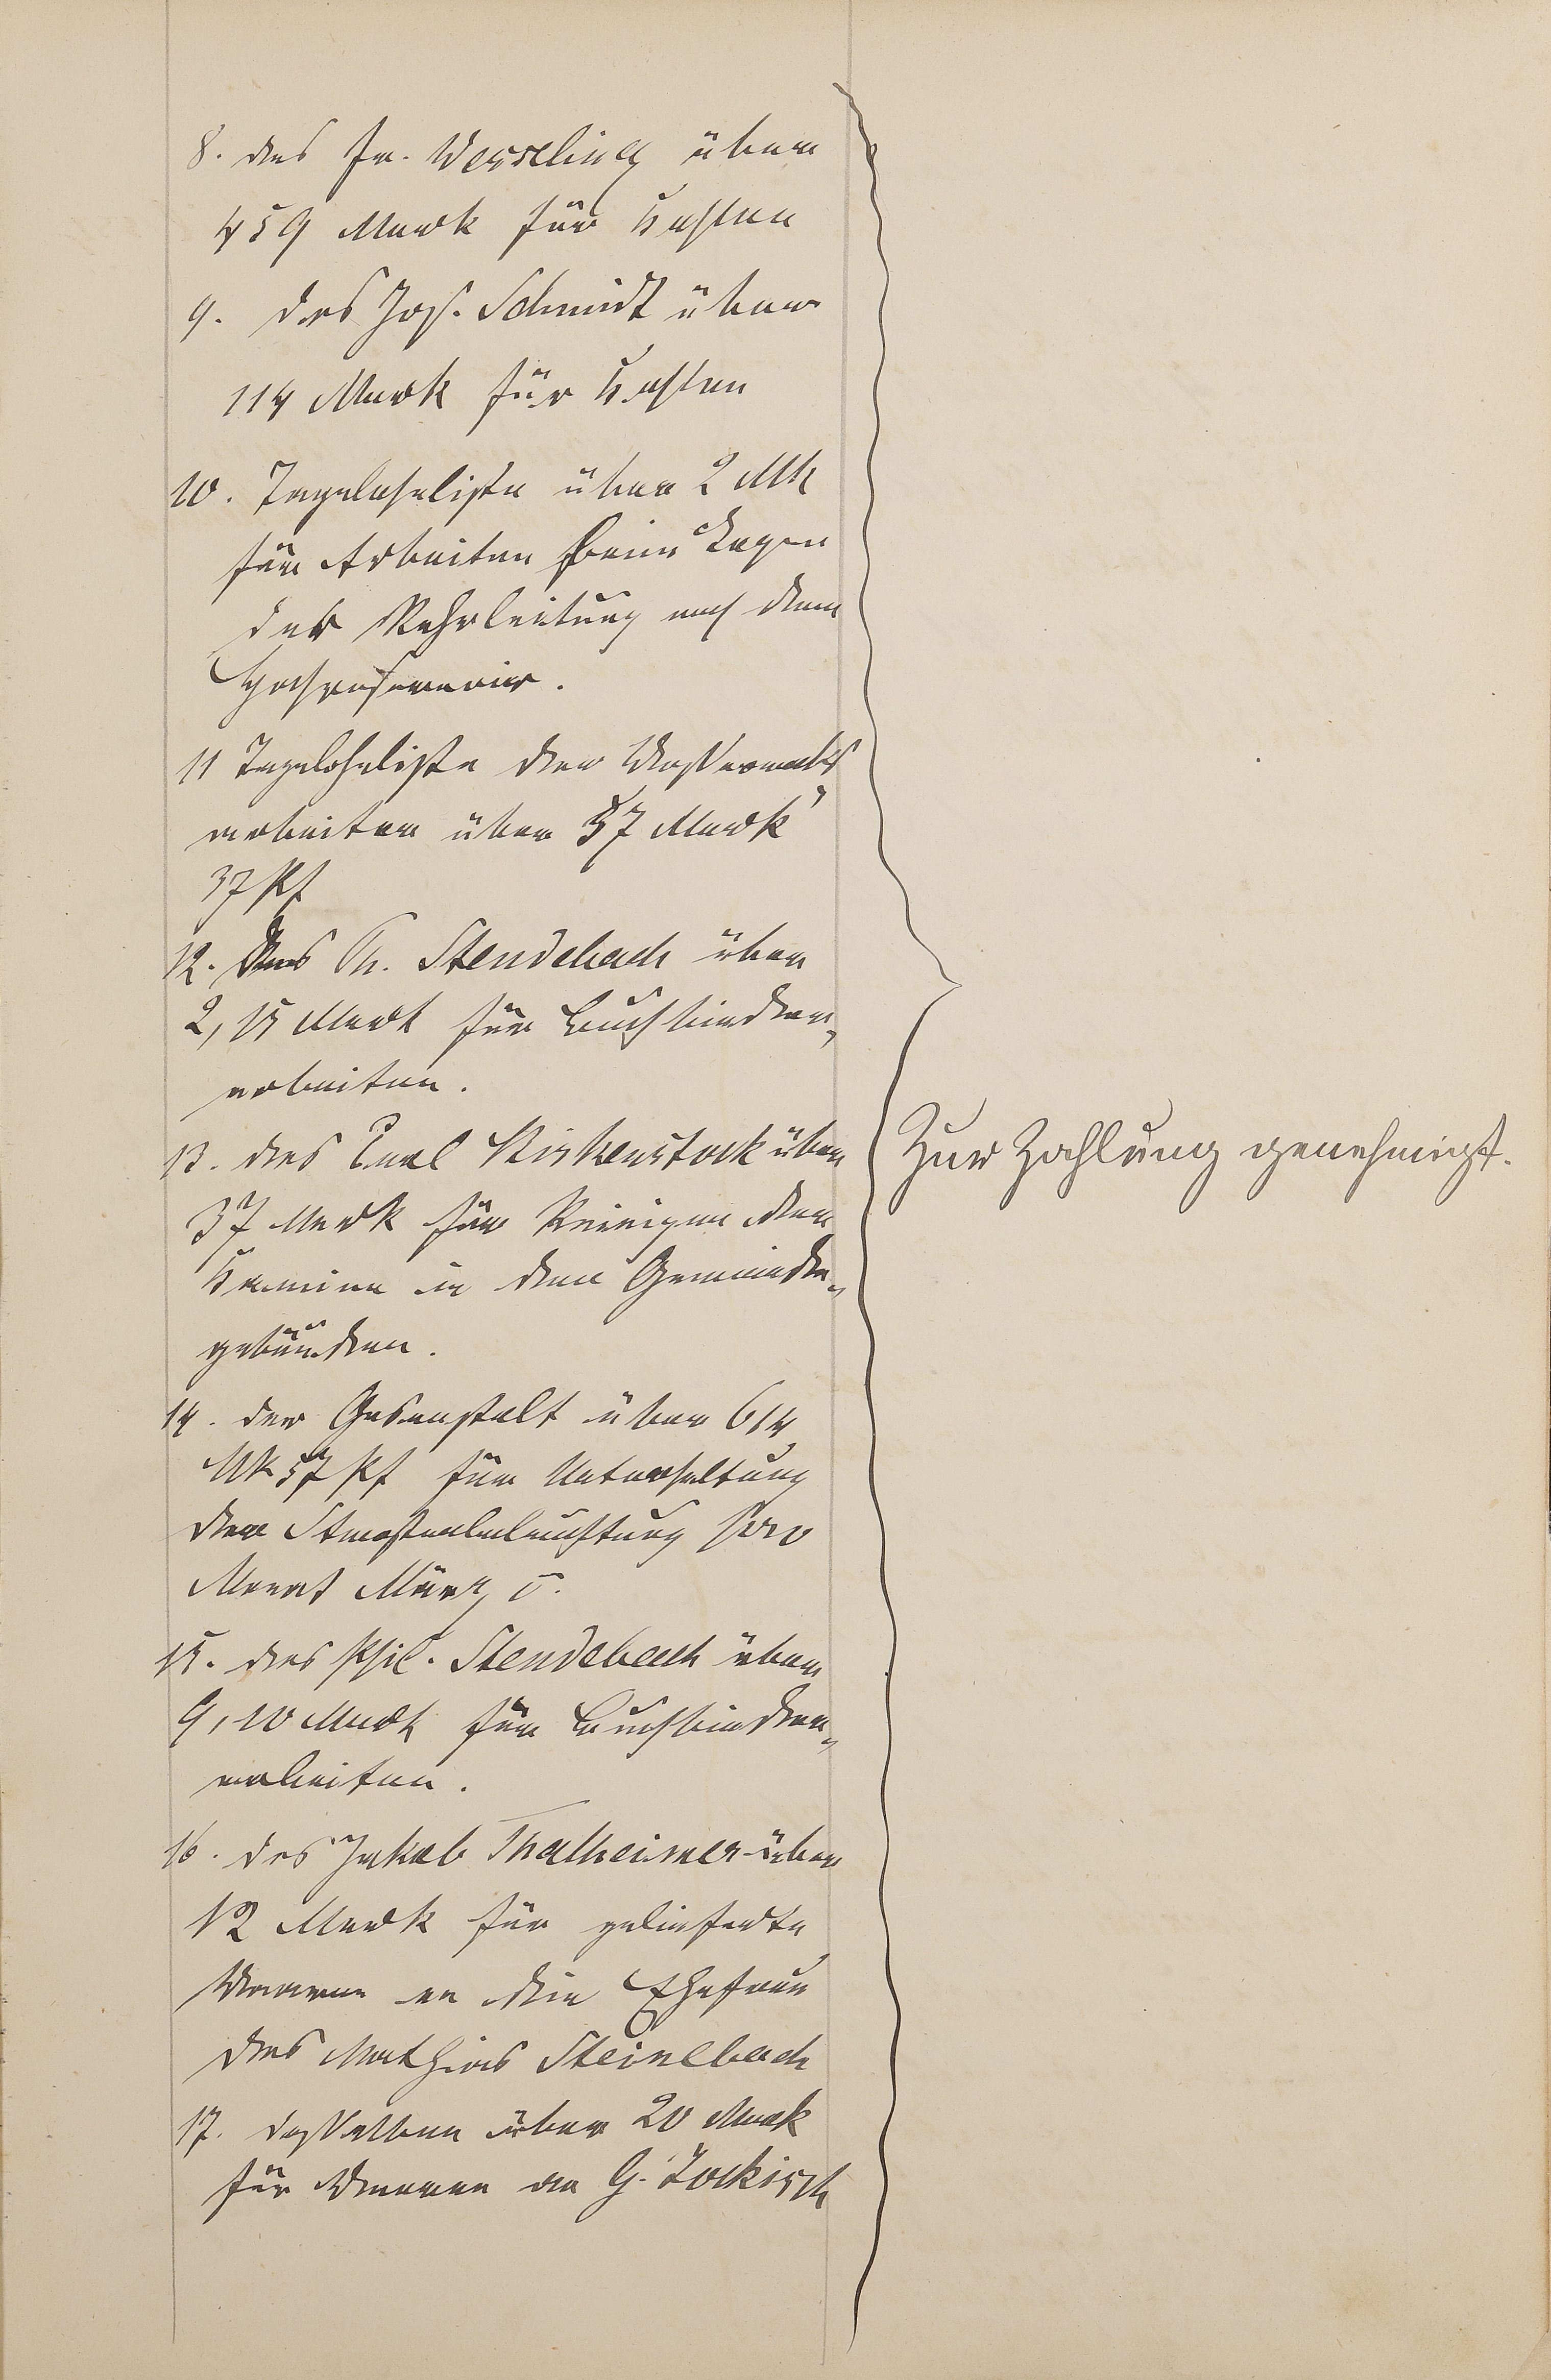 8. des Fr. Wesseling über
459 Mark für Kosten
9. des Jos. Schmidt über
114 Mark für Kosten
10. Tagelohnliste über 2 Mk
für Arbeiten beim Legen
der Rohrleitung nach dem
Hochreservoir.
11 Tagelohnliste der Wasserwerks
arbeiten über 57 Mark
37 Pf
12. Des Ph. Stendebach über
2,15 Mark für Buchbinder-
arbeiten.
13. des Carl Birkenstock über
37 Mark für Reinigen der
Kamine in den Gemeinde-
gebäuden.
14. der Gasanstalt über 614
Mk 57 Pf für Unterhaltung
der Strassenbeleuchtung pro
Monat März c.
15. des Phil. Stendebach über
9,10 Mark für Buchbinder-
arbeiten.
16. des Jakob Thalheimer über
12 Mark für gelieferte
Waaren an die Ehefrau
des Mathias Steinebach
17. desselben über 20 Mark
für Waaren an G. Jockisch
Zur Zahlung genehmigt.